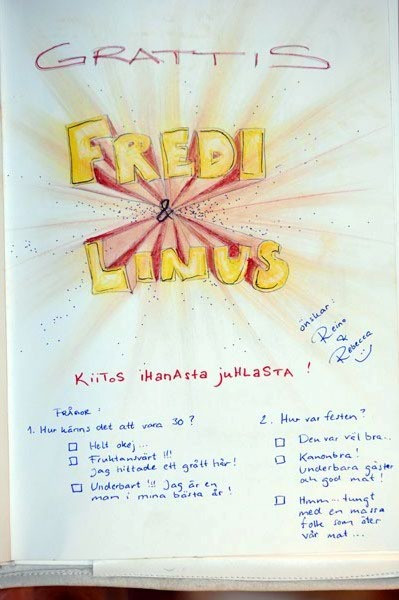 GRATTIS
FREDI
&
LINUS
önskar:
Reino
&
Rebecca
KiiTOS iHANASTA JUHLASTA !
FRÅGOR:
1. Hur känns det att vara 30 ?
Helt okej...
Fruktansvärt !!!
jag hittade ett grått hår!
Underbart !!! Jag är en
man i mina bästa år !
2. Hur var festen?
Den var väl bra...
Kanonbra!
underbara gäster
och god mat !
Hmm... tungt
med en massa
folk som äter
vår mat...